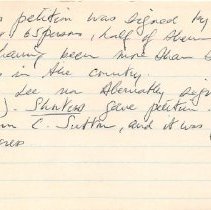 s petition was signed by
65 persons, half of them
having been more than 6
s in the country.
Lee nor Abernathy sign
J. Shutess gave petition
C. Sutton, and it was
ress